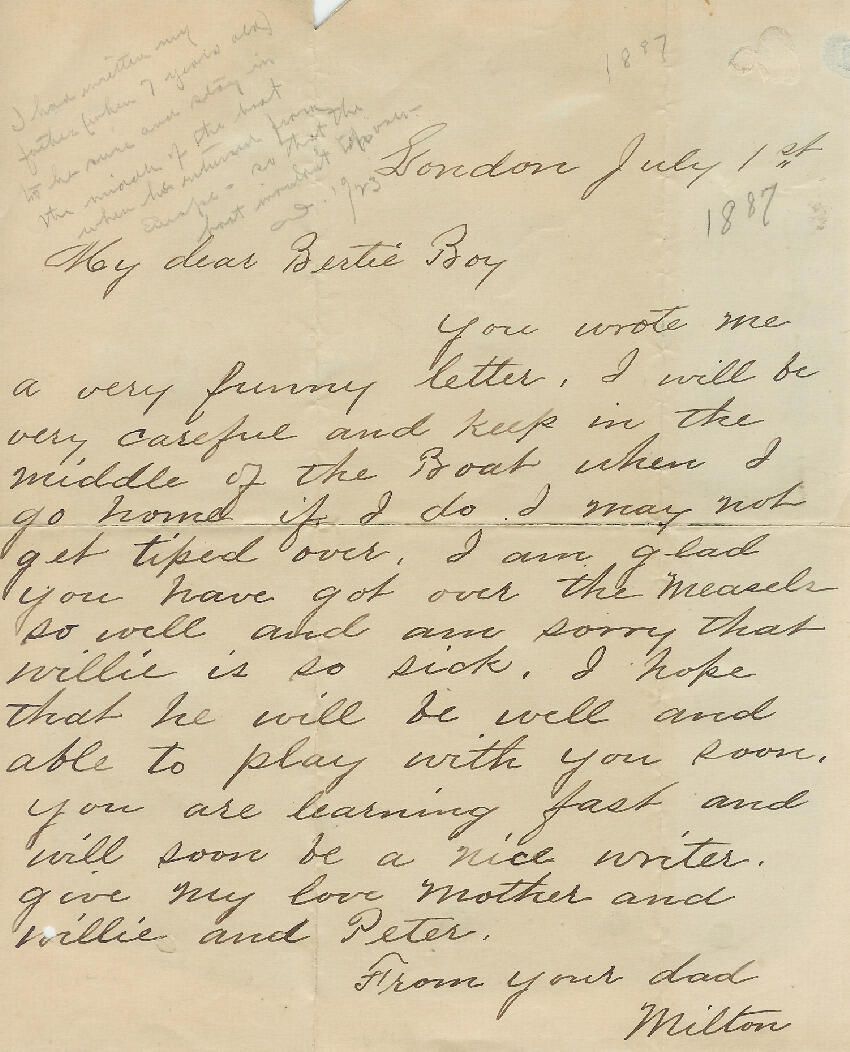 I had written my
father (when 7 years old)
to be sure and stay in
the middle of the boat
when he returned from
Europe - so that the
boat wouldn't tip over
1923
1887
London July 1st
1887
My dear Bertie Boy
You wrote me
a very funny letter. I will be
very careful and keep in the
middle of the Boat when I
go home if I do I may not
get tiped over. I am glad
you have got over the Measels
so well and am sorry that
willie is so sick. I hope
that he will be well and
able to play with you soon.
you are learning fast and
will soon be a nice writer.
give my love Mother and
willie and Peter.
From your dad
Milton